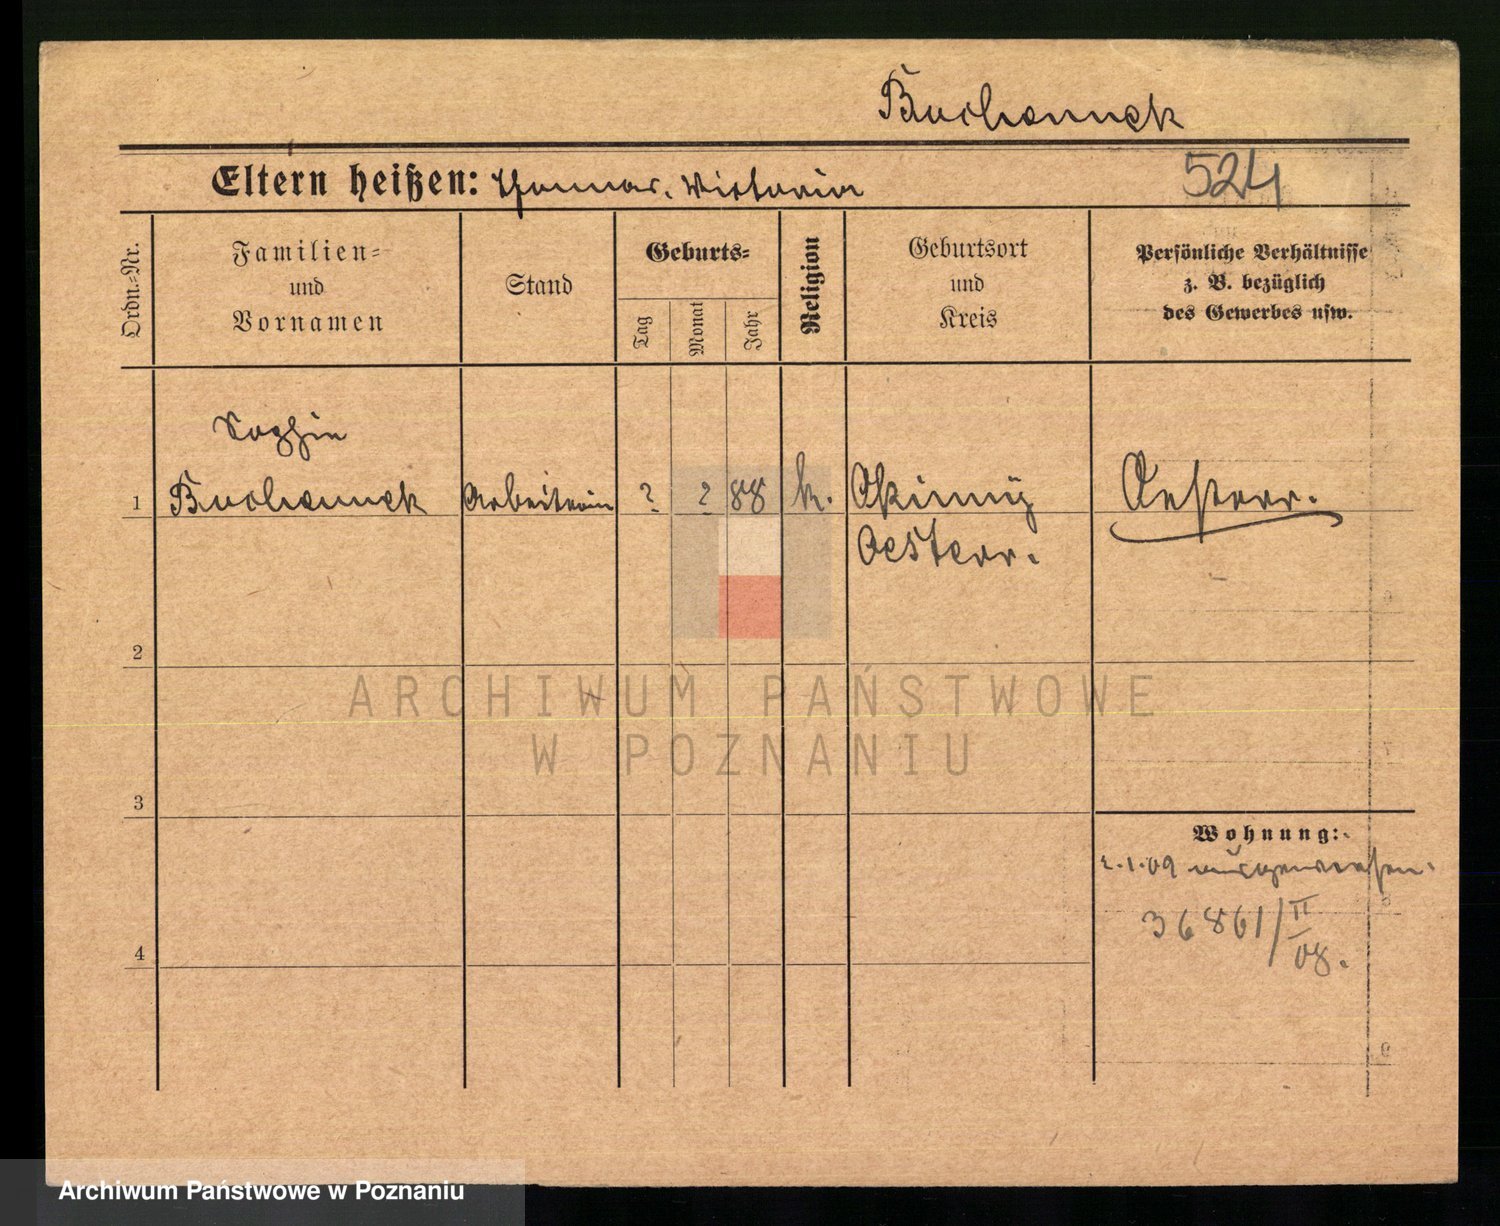 Buchannek
Eltern heißen: Thomas. Victoria
524
Ordn.-Nr.
Familien-
und
Vornamen
Stand
Geburts-
Tag
Monat
Jahr
Religion
Geburtsort
und
Kreis
Persönliche Verhältnisse
z. B. bezüglich
des Gewerbes usw.
Sophie
1 Buchannek Arbeiterin ? ? 88 k. Oesterr.
Oesterr.
2
ARCHIWUM PAŃSTWOWE
W POZNANIU
3
Wohnung:
2.1.09 ausgewiesen.
36861/II
08.
4
Archiwum Państwowe w Poznaniu